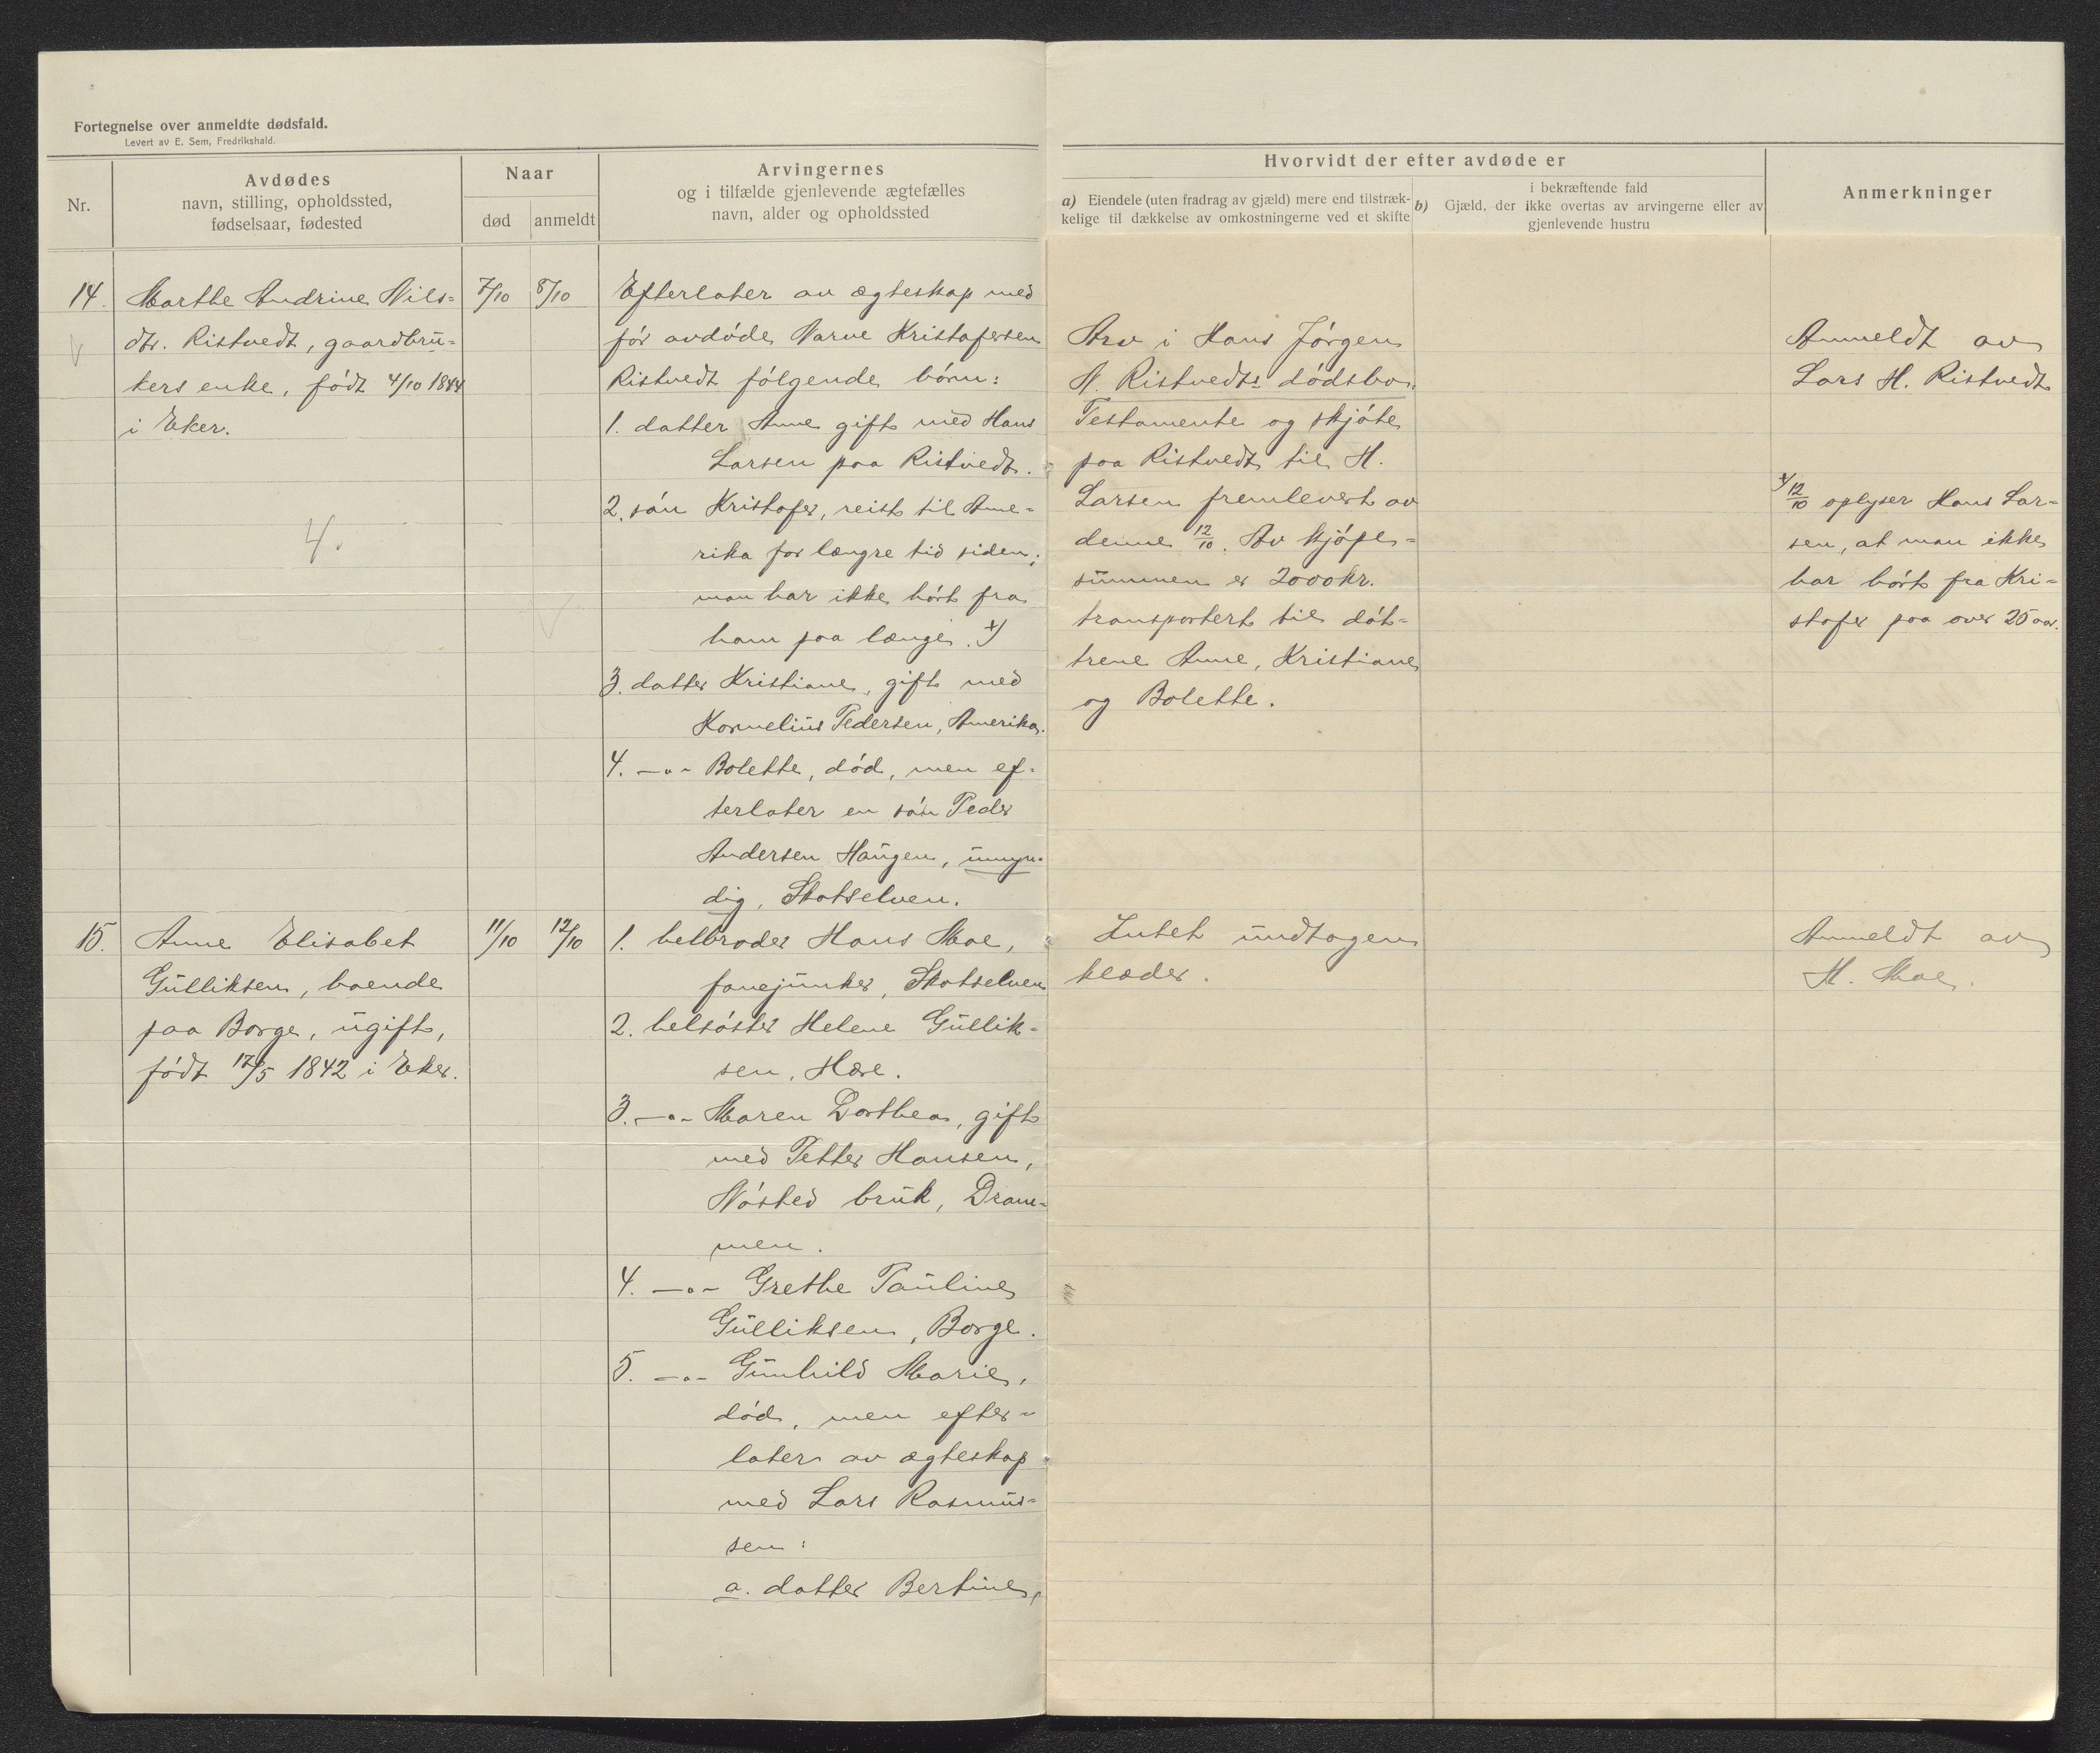 Fortegnelse over anmeldte dødsfald.
Levert av E. Sem, Fredrikshald.
Nr.
Avdødes
navn, stilling, opholdssted,
fødselsaar, fødested
Naar
død
anmeldt
Arvingernes
og i tilfælde gjenlevende ægtefælles
navn, alder og opholdssted
Hvorvidt der efter avdøde er
a) Eiendele (uten fradrag av gjæld) mere end tilstræk-
kelige til dækkelse av omkostningerne ved et skifte
i bekræftende fald
b) Gjæld, der ikke overtas av arvingerne eller av
gjenlevende hustru
Anmerkninger
14.
Marthe Andrine Nils-
dtr. Ristvedt, gaardbru-
kers enke, født 4/10 1844
i Eker.
4.
7/10
8/10
Efterlater av ægteskap med
før avdøde Narve Kristofersen
Ristvedt følgende børn:
1. datter Anne gift med Hans
Larsen paa Ristvedt.
2. søn Kristofer, reist til Ame-
rika for længre tid siden;
man har ikke hørt fra
ham paa længe. x)
3. datter Kristiane, gift med
Kornelius Pedersen, Amerika.
4. -"- Bolette, død, men ef-
terlater en søn Peder
Andersen Haugen, umyn-
dig, Skotselven.
Arv i Hans Jørgen
N. Ristvedts dødsbo.
Testamente og skjøte
paa Ristvedt til H.
Larsen fremlevert av
denne 12/10. Av kjøpe-
summen er 2000 kr.
transportert til døt-
trene Anne, Kristiane
og Bolette.
Anmeldt av
Lars H. Ristvedt
x) 12/10 oplyser Hans Lar-
sen, at man ikke
har hørt fra Kri-
stofer paa over 25 aar.
15.
Anne Elisabet
Gulliksen, boende
paa Borge, ugift,
født 17/5 1842 i Eker.
11/10
12/10
1. helbroder Hans Moe,
fanejunker, Skotselven
2. helsøster Helene Gullik-
sen, Hære.
3. -"- Maren Dorthea, gift
med Petter Hansen,
Nøsted bruk, Dram-
men.
4. -"- Grethe Pauline
Gulliksen, Borge.
5. -"- Gunhild Marie,
død, men efter-
later av ægteskap
med Lars Rasmus-
sen:
a. datter Bertine,
Intet undtagen
klæder.
Anmeldt av
H. Moe.